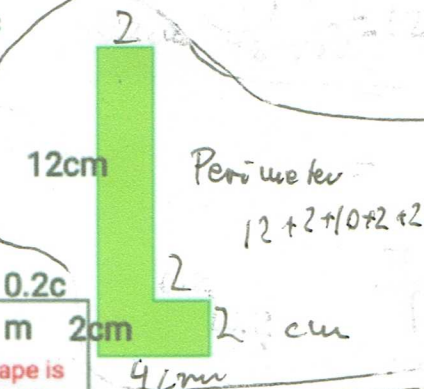 2
12cm
Perimeter
12+2+10+2+2
2
0.2c
m
2cm
2 cm
ape is
4cm